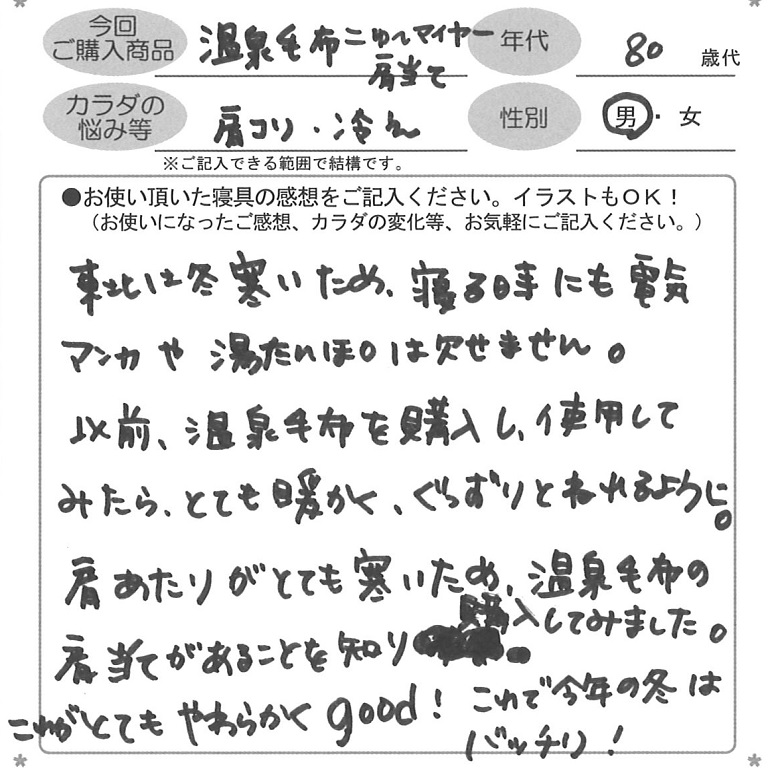 今回
ご購入商品
温泉毛布ニューマイヤー
肩当て
年代
80
歳代
カラダの
悩み等
肩コリ・冷え
性別
男・女
※ご記入できる範囲で結構です。
●お使い頂いた寝具の感想をご記入ください。イラストもOK!
(お使いになったご感想、カラダの変化等、お気軽にご記入ください。)
東北は冬寒いため、寝る時にも電気
マンカや湯たんぽは欠せません。
以前、温泉毛布を購入し、使用して
みたら、とても暖かく、ぐっすりとねれるように。
肩あたりがとても寒いため、温泉毛布の
肩当てがあることを知り購入してみました。
これがとてもやわらかくgood!これで今年の冬は
バッチリ!